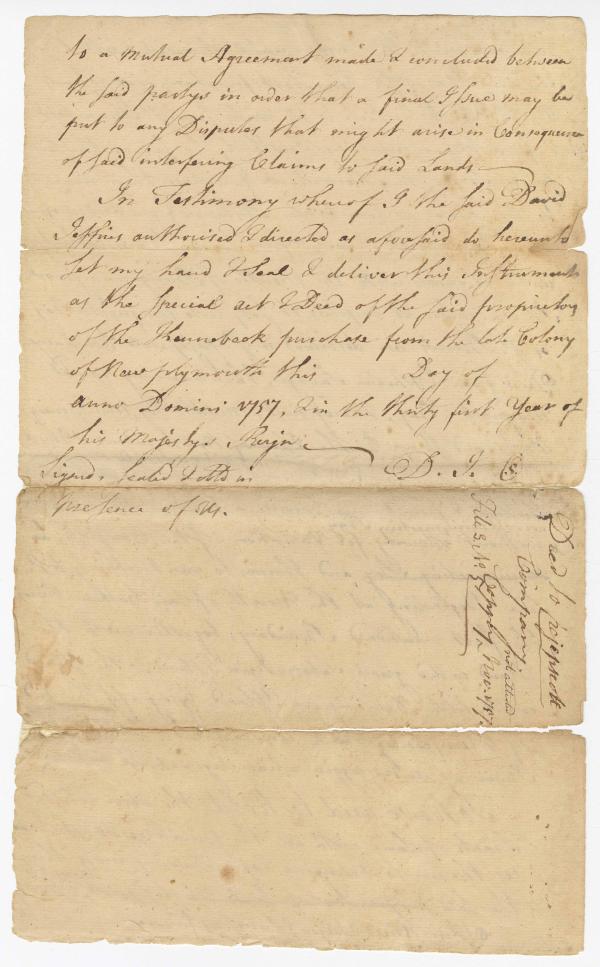 to a mutual Agreement made & concluded between
the said partys in order that a final Issue may be
put to any Disputes that might arise in Consequence
of said interfering Claims to said Lands
In Testimony whereof I the said David
Jeffries authorised & directed as aforesaid do hereunto
set my hand & Seal & deliver this Instrument
as the Special act & Deed of the said proprietors
of the Kennebeck purchase from the late Colony
of New plymouth this Day of
anno Domini 1757, & in the thirty first Year of
his Majestys Reign
D. J. S
Signd, Sealed & dld in
presence of us.
Deed to
Company
not attested
File 3. No.
Copy Nov. 1757